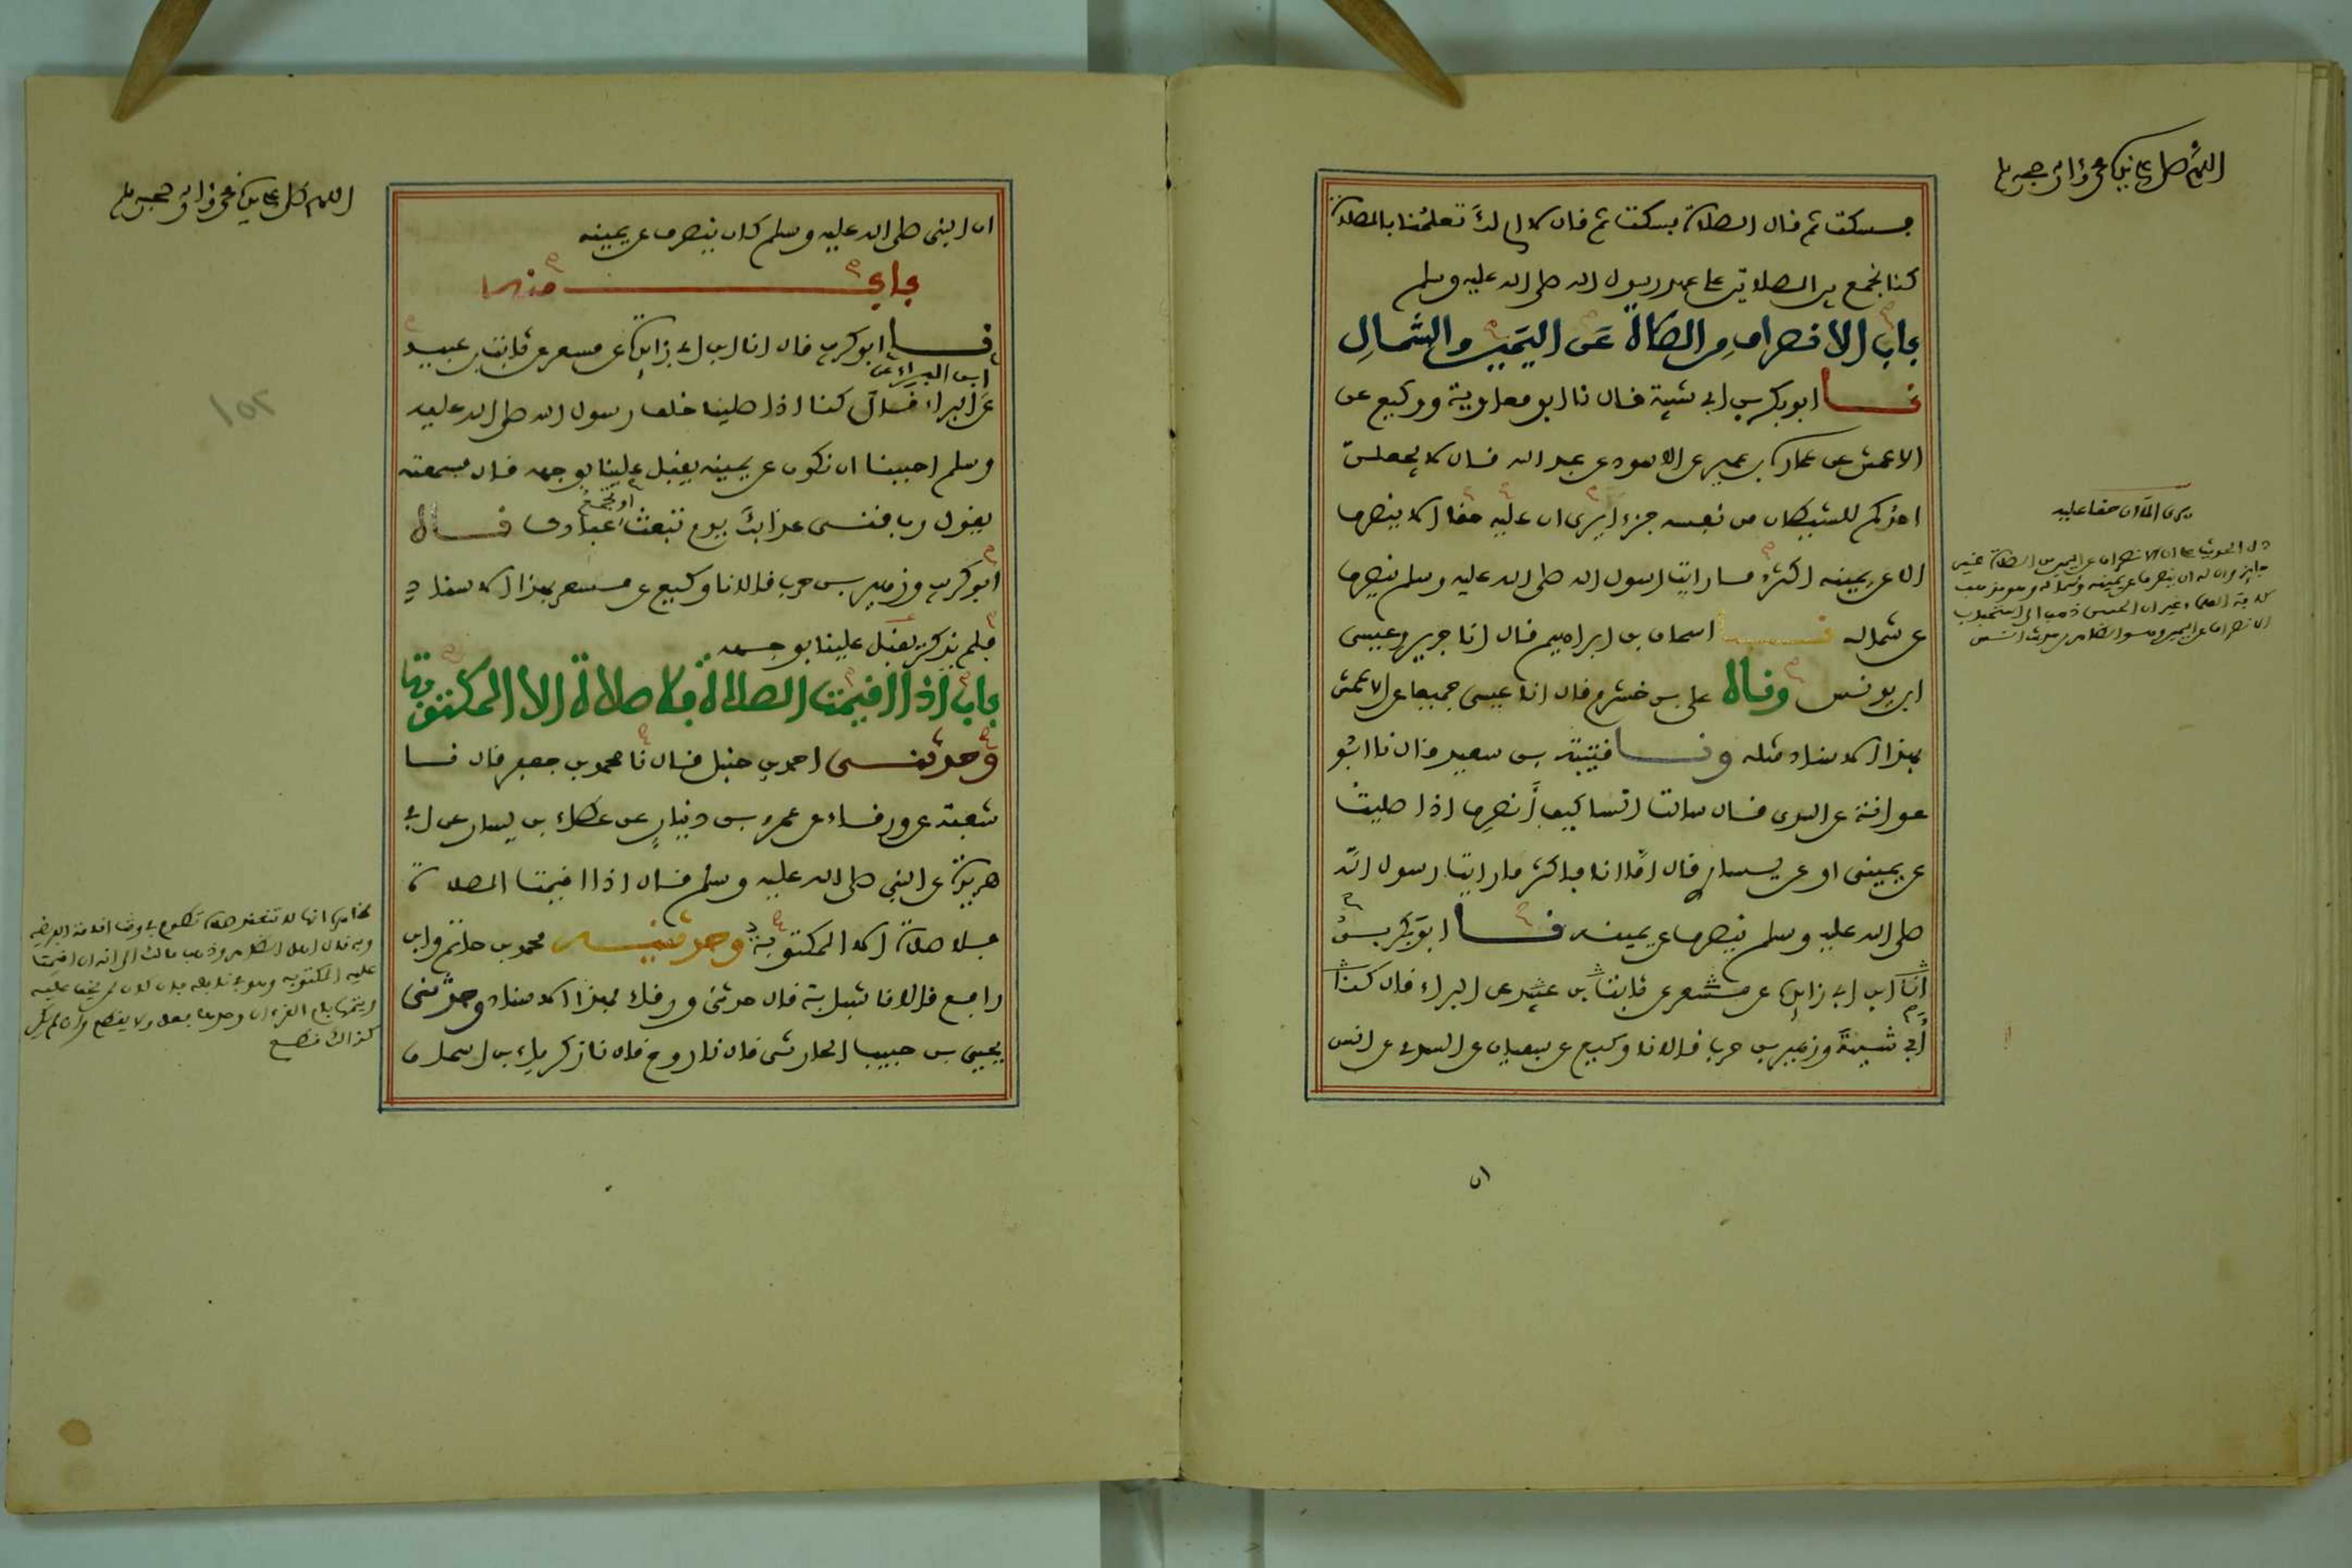 اللهم صل على نبيك محمد وآله وصحبه وسلم
فسكت ثم قال الصلاة فسكت ثم قال لا ام لك تعلمنا بالصلاة
كنا نجمع بين الصلاتين على عهد رسول الله صلى الله عليه وسلم
باب الانصراف من الصلاة عن اليمين والشمال
نا ابو بكر بن ابي شيبة قال نا ابو معاوية ووكيع عن
الاعمش عن عمارة بن عمير عن الاسود عن عبد الله قال لا يجعلن
احدكم للشيطان من نفسه جزءا يرى ان عليه حقا الا ينصرف
الا عن يمينه اكثر ما رايت رسول الله صلى الله عليه وسلم ينصرف
عن شماله نا اسحاق بن ابراهيم قال انا جرير وعيسى
ابن يونس وقال علي بن خشرم قال انا عيسى جميعا عن الاعمش
بهذا الاسناد مثله ونا قتيبة بن سعيد قال نا ابو
عوانة عن السدي قال سالت انسا كيف أنصرف اذا صليت
عن يميني او عن يساري قال امّا انا فاكثر ما رايت رسول الله
صلى الله عليه وسلم ينصرف عن يمينه نا ابو بكر بن
انا ابن ابي زايدة عن مسعر عن ثابت بن عبيد عن البراء قال كنا
أبي شيبة وزهير بن حرب قالا نا وكيع عن سفيان عن السدي عن انس
ان
يرى الا ان حقا عليه
دل الحديث على ان الانصراف عن اليمين من الصلاة غير
الانصراف عن اليمين وهو الظاهر من حديث انس
اللهم صل على نبيك محمد وآله وصحبه وسلم
ان النبي صلى الله عليه وسلم كان ينصرف عن يمينه
باب منه
نا ابو كريب قال انا ابن ابي زايدة عن مسعر عن ثابت بن عبيد
ابن البراء عن
عن البراء قال كنا اذا صلينا خلف رسول الله صلى الله عليه
وسلم احببنا ان نكون عن يمينه يقبل علينا بوجهه قال فسمعته
او تجمع
يقول رب قني عذابك يوم تبعث عبادك قال
ابو كريب وزهير بن حرب قالا نا وكيع عن مسعر بهذا الاسناد
فلم يذكر يقبل علينا بوجهه
باب اذا اقيمت الصلاة فلا صلاة الا المكتوبة
وحدثني احمد بن حنبل قال نا محمد بن جعفر قال نا
شعبة عن ورقاء عن عمرو بن دينار عن عطاء بن يسار عن ابي
هريرة عن النبي صلى الله عليه وسلم قال اذا اقيمت الصلاة
فلا صلاة الا المكتوبة وحدثنيه محمد بن حاتم وابن
رافع قالا نا شبابة قال حدثني ورقاء بهذا الاسناد وحدثني
يحيى بن حبيب الحارثي قال نا روح قال نا زكرياء بن اسحاق
وبه قال اهل الظاهر وذهب مالك الى انه ان اقيمت
كذلك قطع
١٥٢